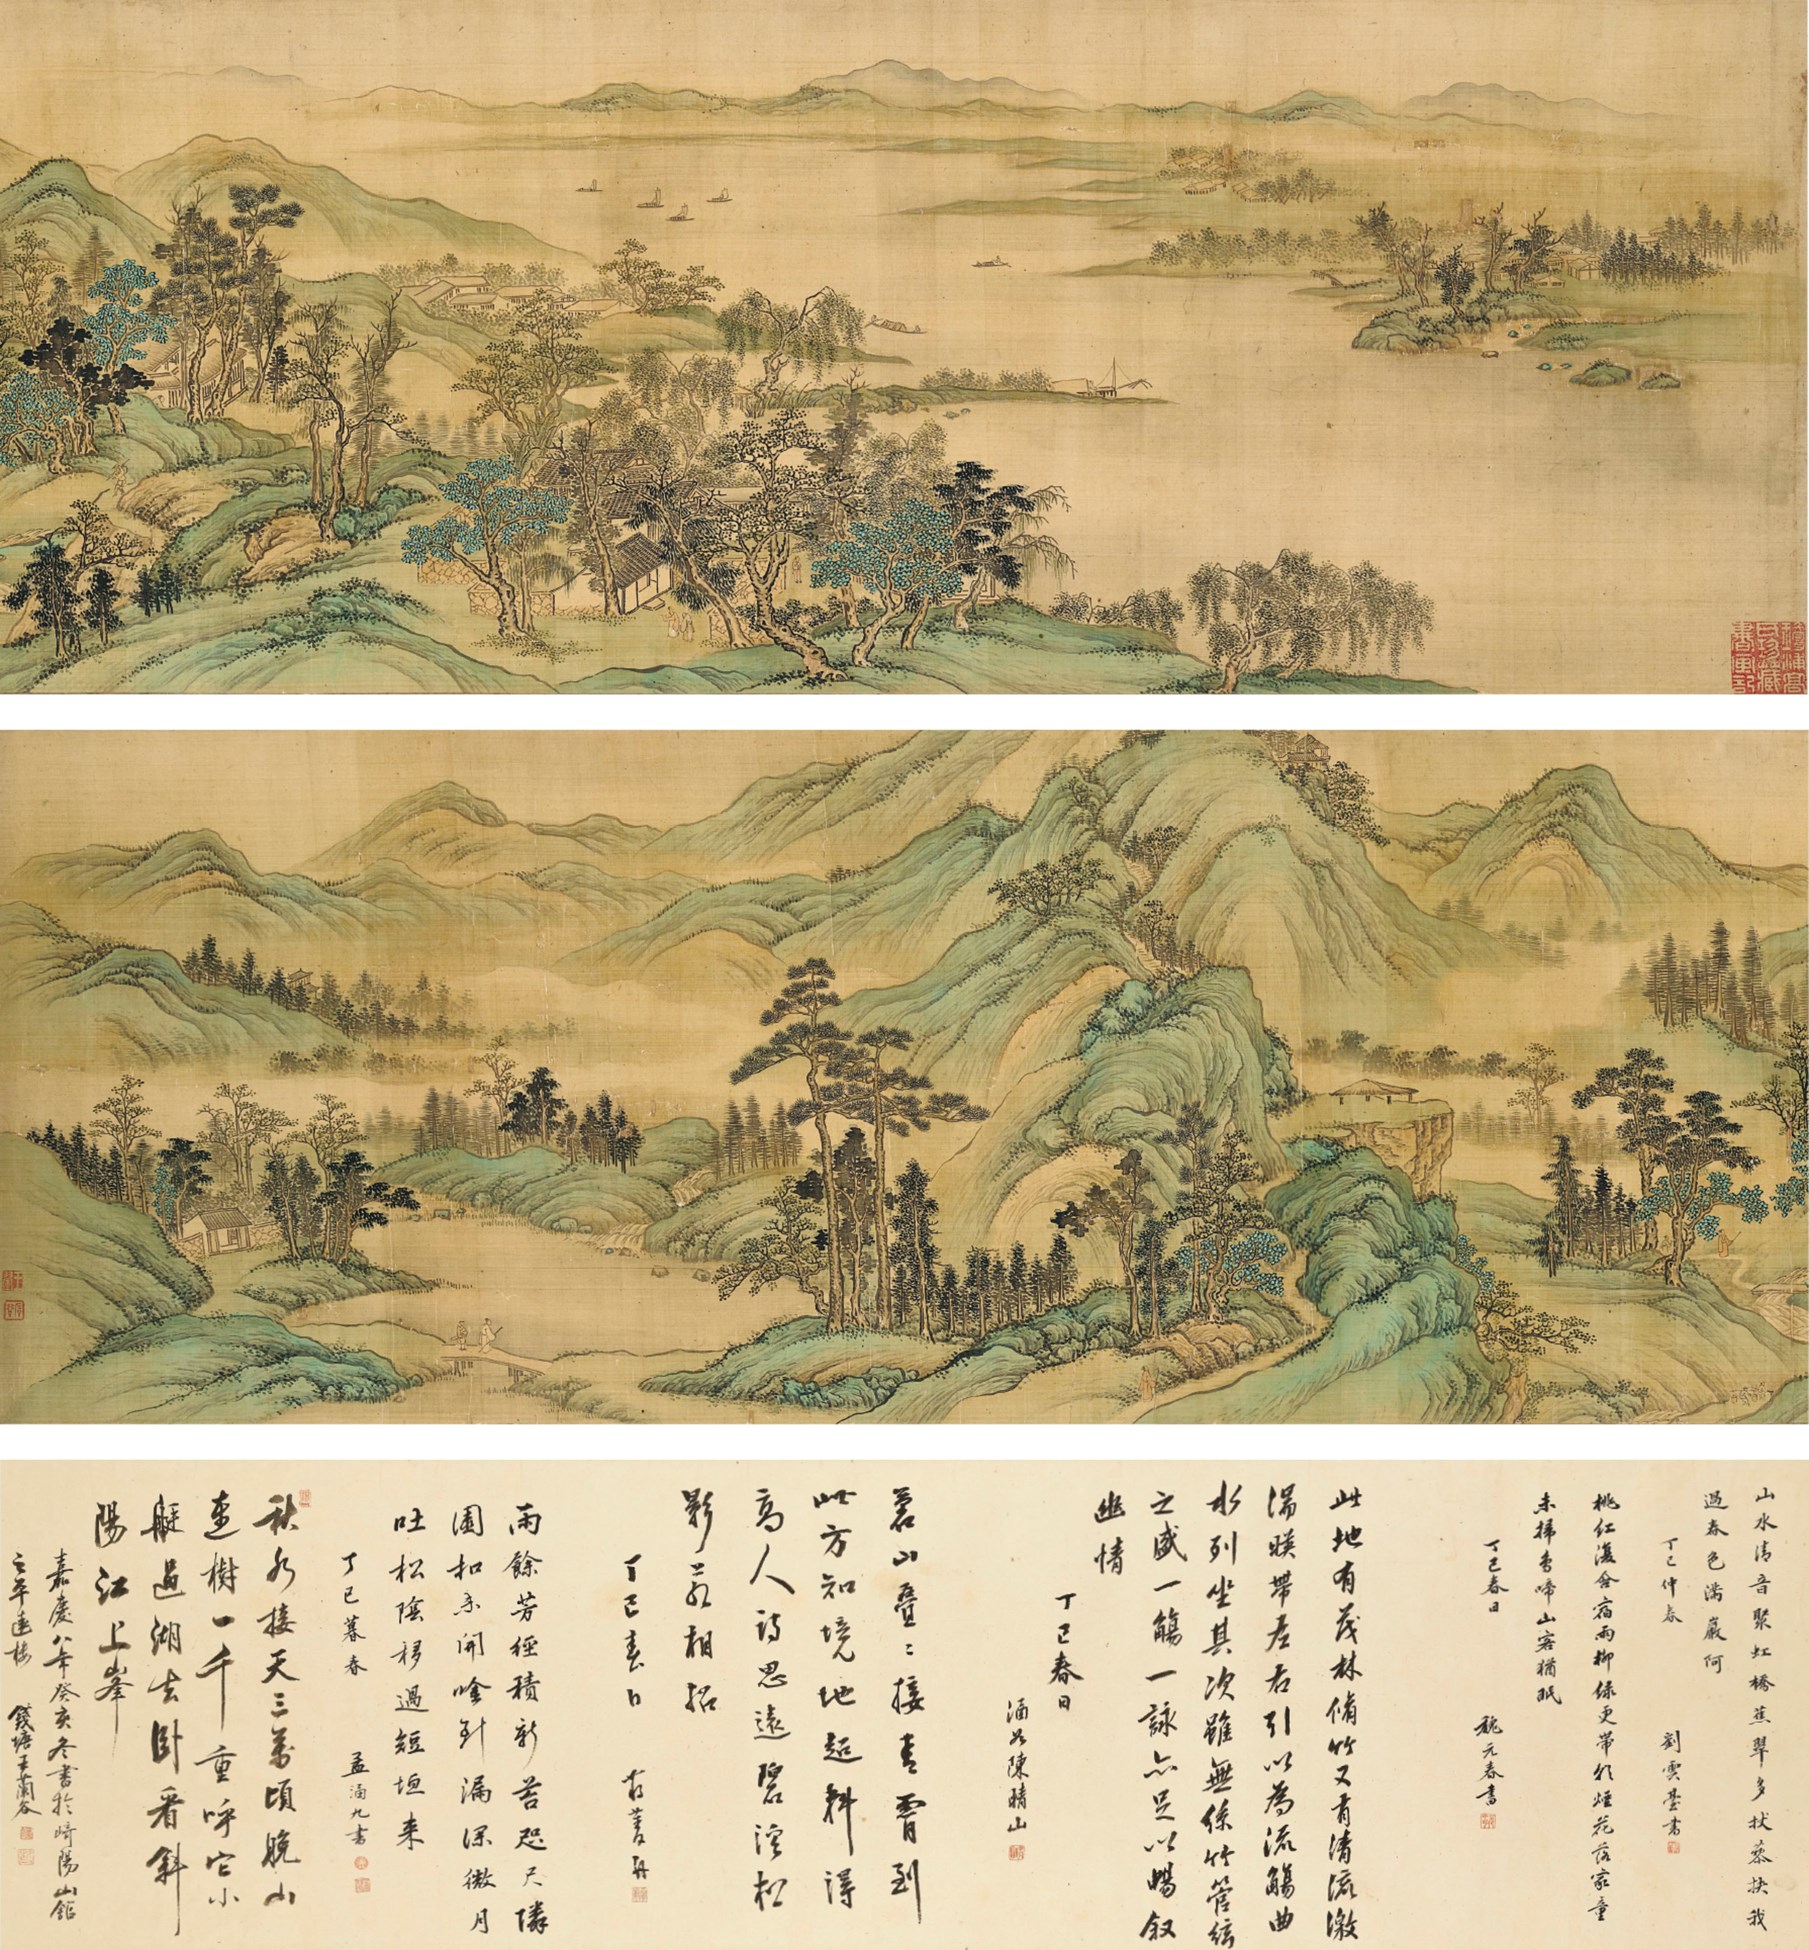 山水清音聚虹橋蕉翠多扶藜挾我
過春色滿巖何
丁巳仲春 劉雲臺書
桃紅復含宿雨柳綠更帶朝煙花落家童
未掃鳥啼山客猶眠
丁巳春日 魏元春書
此地有茂林脩竹又有清流激
湍暎帶左右引以為流觴曲
水列坐其次雖無絲竹管絃
之盛一觴一詠亦足以暢叙
幽情
丁巳春日 陳晴山
蒼山疊〻接青霄到
此方知境地超料得
高人詩思遠碧潭松
影若相招
丁巳春日
雨餘芳徑積新苔咫尺隣
園和未開 對漏深微月
吐松陰移過短垣來
丁巳暮春 孟涵九書
秋水接天三萬頃晚山
連樹一千重呼它小
艇過湖去臥看斜
陽江上峯
嘉慶八年癸亥冬書於崎陽山館
之平遠樓 錢塘王蘭谷